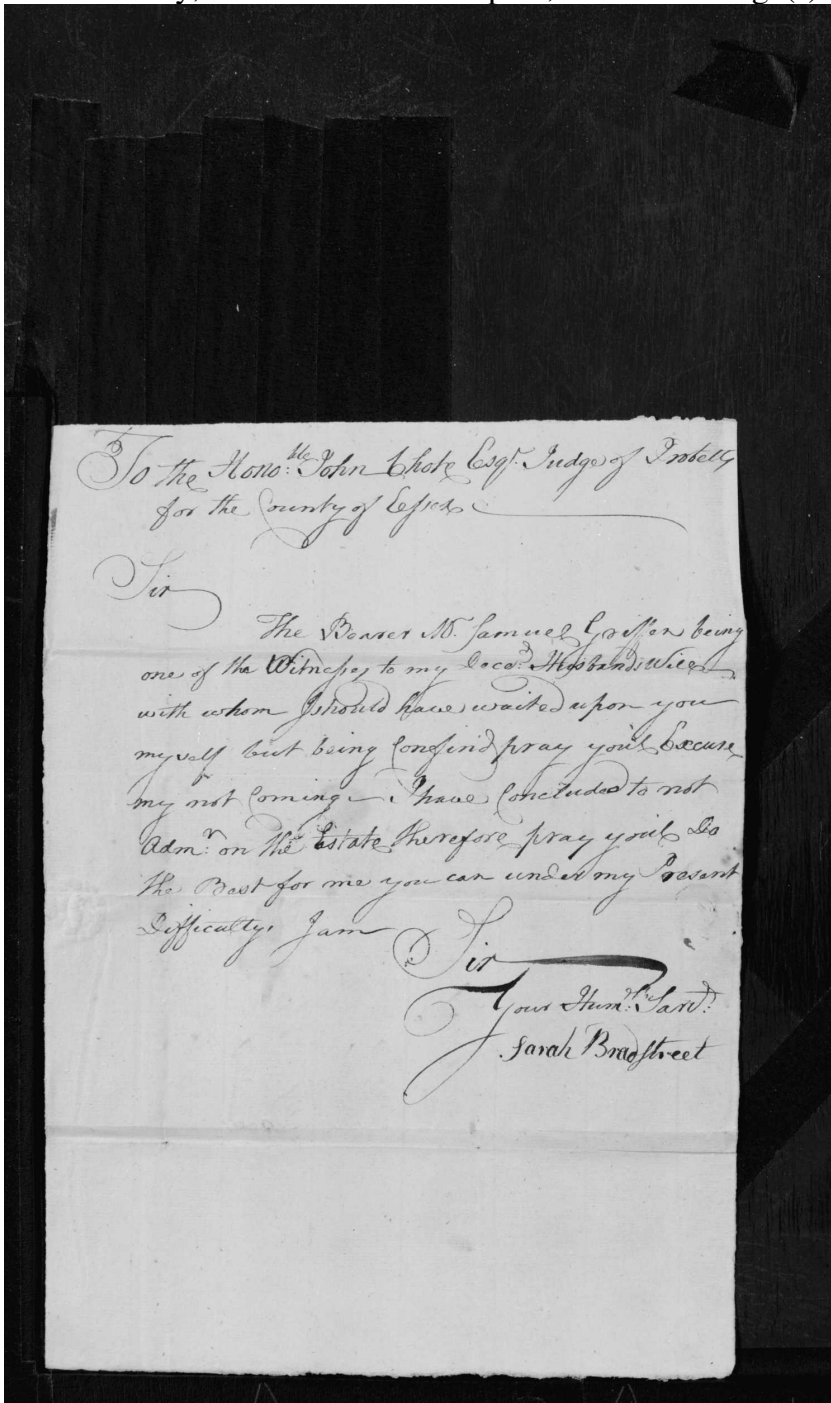 To the Hono:ble John Chote Esqr. Judge of Probetts
for the County of Essex
Sir
The Bearer Mr. Samuel Griffen being
one of the Witnesses to my Decd. Husbands Will
with whom I should have waited upon you
myself but being Confind pray youl Excuse
my not Coming - I have Concluded to not
Admr. on the Estate therefore pray youl Do
the Best for me you can under my Present
Difficulty. I am
Sir
Your Humble Sarvt.
Sarah Bradstreet